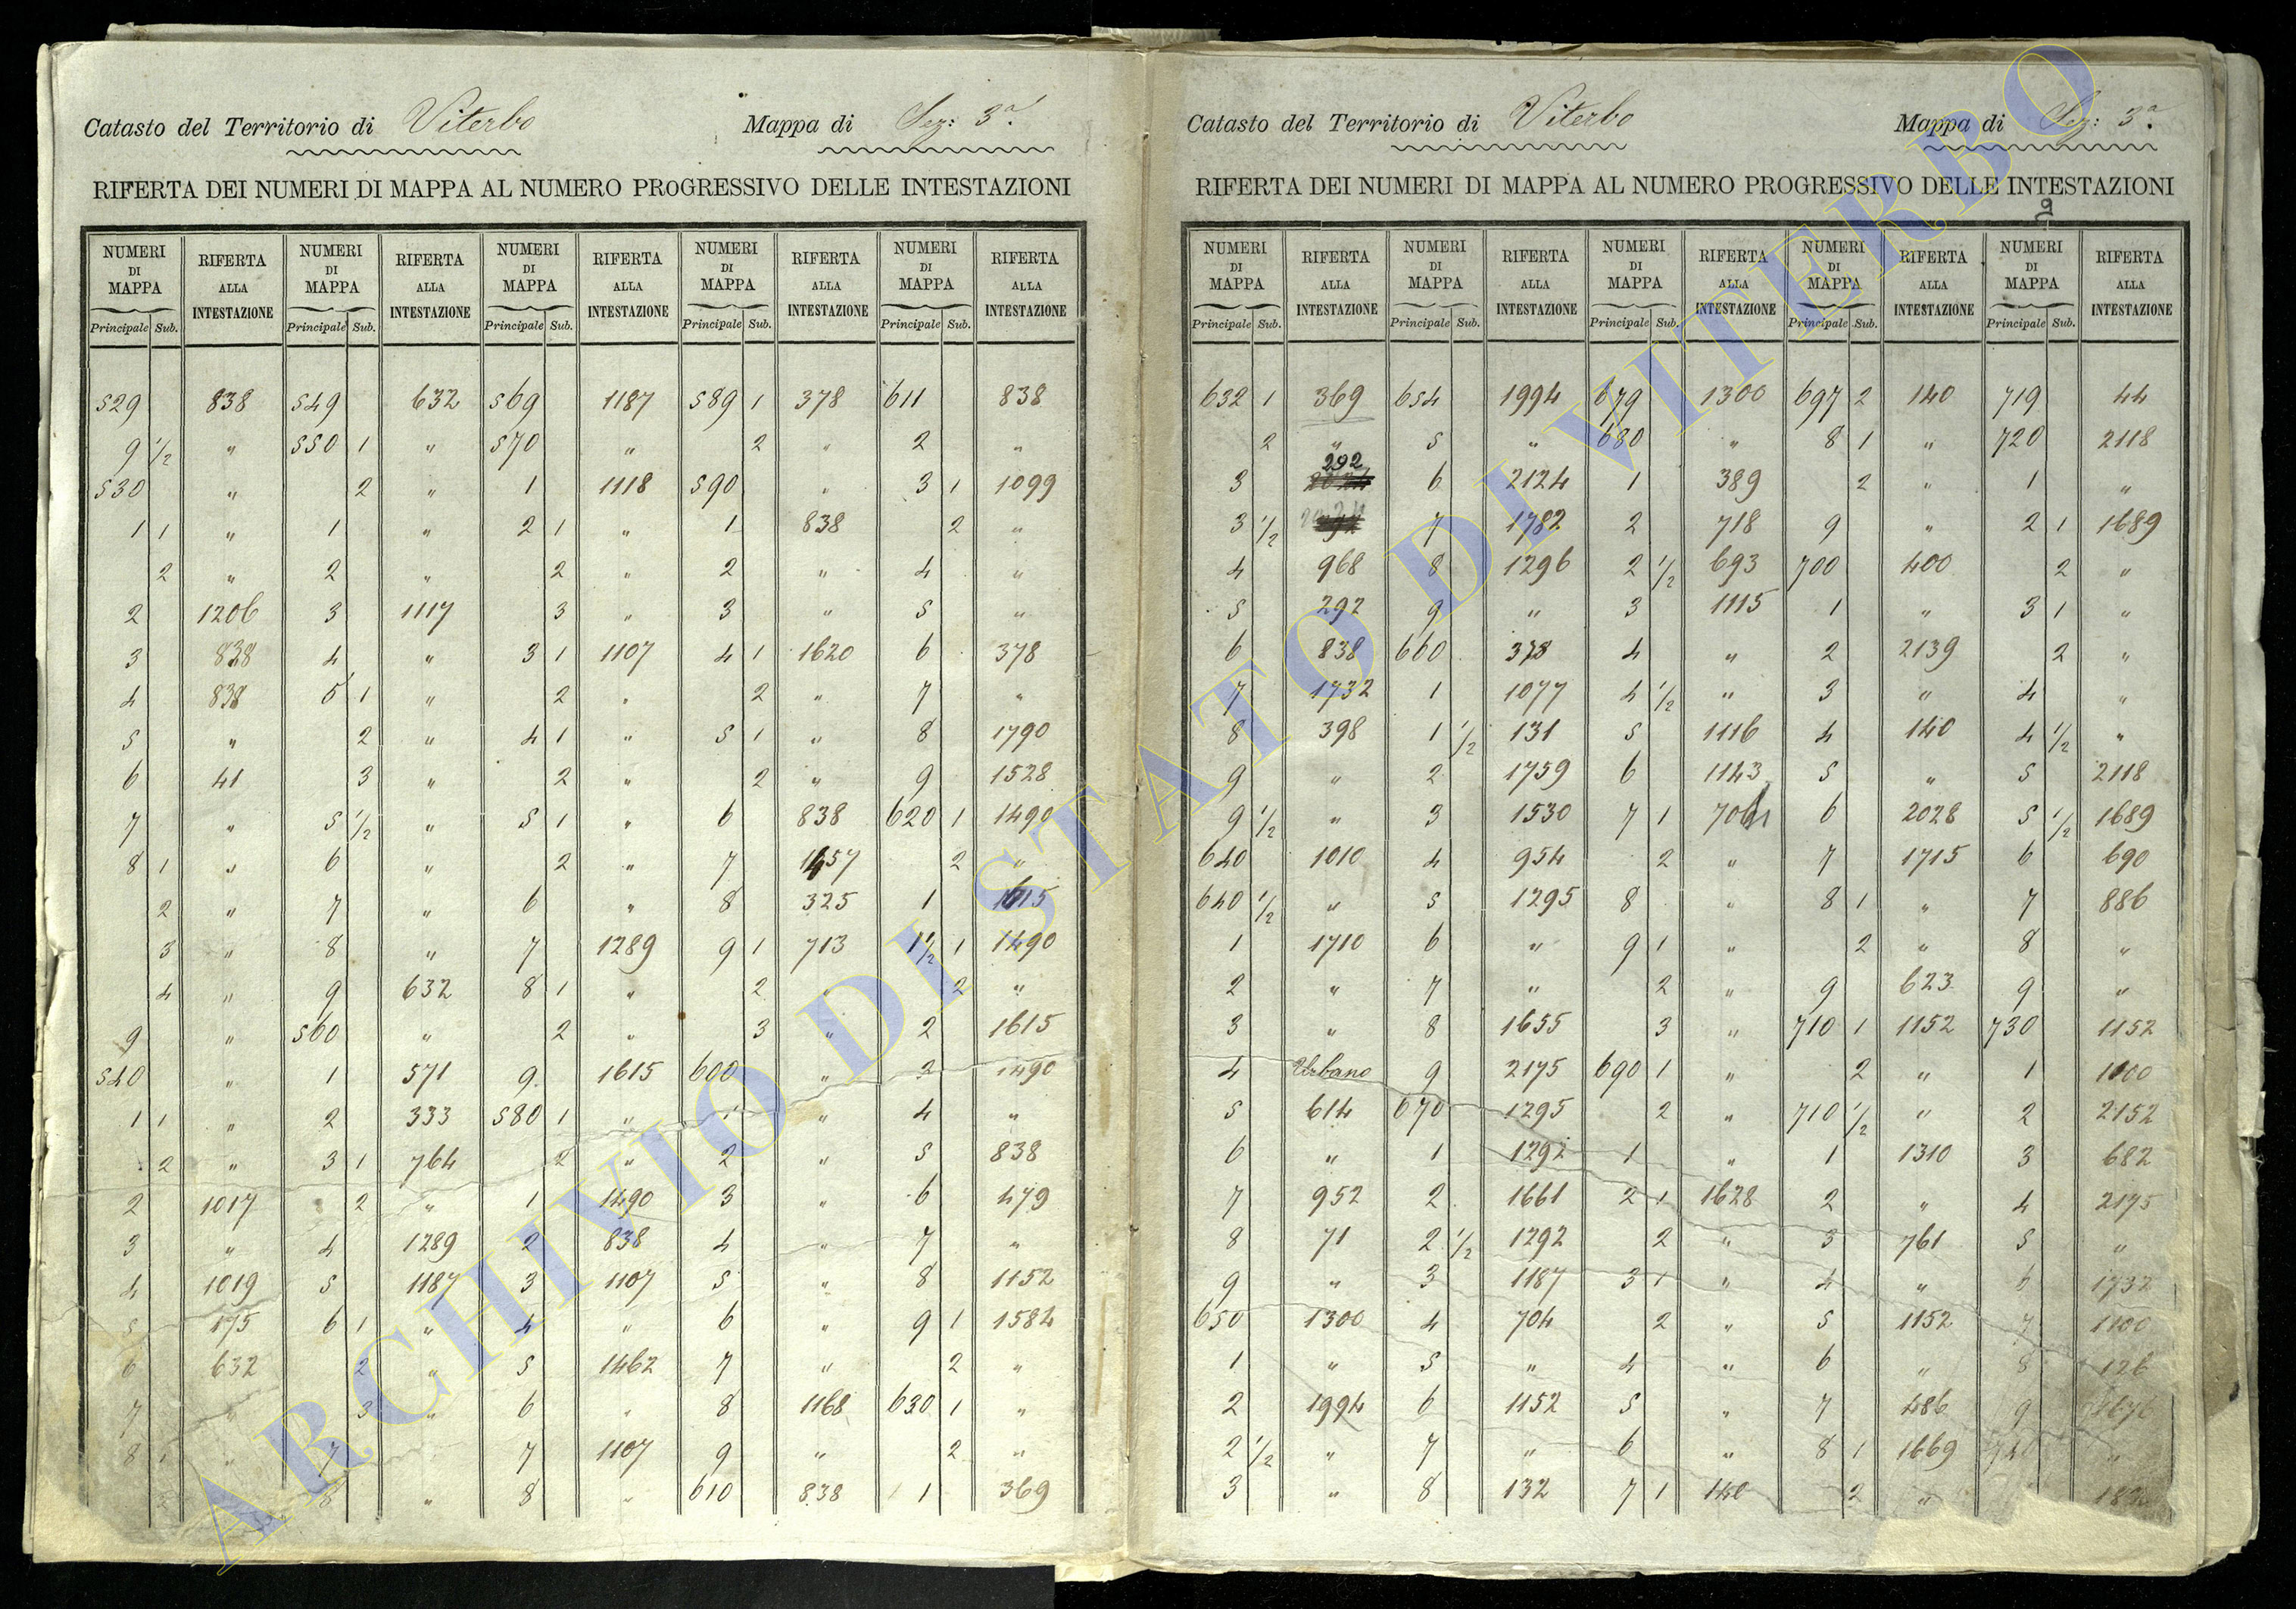 Catasto del Territorio di Viterbo Mappa di Sez: 3ª
RIFERTA DEI NUMERI DI MAPPA AL NUMERO PROGRESSIVO DELLE INTESTAZIONI
NUMERI DI MAPPA RIFERTA ALLA INTESTAZIONE NUMERI DI MAPPA RIFERTA ALLA INTESTAZIONE NUMERI DI MAPPA RIFERTA ALLA INTESTAZIONE NUMERI DI MAPPA RIFERTA ALLA INTESTAZIONE NUMERI DI MAPPA RIFERTA ALLA INTESTAZIONE
Principale Sub. Principale Sub. Principale Sub. Principale Sub. Principale Sub.
529 838 549 632 569 1187 589 1 378 611 838
9 1/2 " 550 1 " 570 " 2 " 2 "
530 " 2 " 1 1118 590 " 3 1 1099
1 1 " 1 " 2 1 " 1 838 2 "
2 " 2 " 2 " 2 " 4 "
2 1206 3 1117 3 " 3 " 5 "
3 838 4 " 3 1 1107 4 1 1620 6 378
4 838 5 1 " 2 " 2 " 7 "
5 " 2 " 4 1 " 5 1 " 8 1790
6 41 3 " 2 " 2 " 9 1528
7 " 5 1/2 " 5 1 " 6 838 620 1 1490
8 1 " 6 " 2 " 7 1457 2 "
2 " 7 " 6 " 8 325 1 1615
3 " 8 " 7 1289 9 1 713 1 1/2 1 1490
4 " 9 632 8 1 " 2 " 2 "
9 " 560 " 2 " 3 " 2 1615
540 " 1 571 9 1615 600 " 3 1490
1 1 " 2 333 580 1 " 1 " 4 "
2 " 3 1 764 2 " 2 " 5 838
2 1017 2 " 1 1490 3 " 6 479
3 " 4 1289 2 838 4 " 7 "
4 1019 5 1187 3 1107 5 " 8 1152
5 175 6 1 " 4 " 6 " 9 1 1584
6 632 2 " 5 1462 7 " 2 "
7 " 3 " 6 " 8 1168 630 1 "
8 1 " 7 7 1107 9 " 2 "
8 " 8 " 610 838 1 369
Catasto del Territorio di Viterbo Mappa di Sez: 3ª
RIFERTA DEI NUMERI DI MAPPA AL NUMERO PROGRESSIVO DELLE INTESTAZIONI
NUMERI DI MAPPA RIFERTA ALLA INTESTAZIONE NUMERI DI MAPPA RIFERTA ALLA INTESTAZIONE NUMERI DI MAPPA RIFERTA ALLA INTESTAZIONE NUMERI DI MAPPA RIFERTA ALLA INTESTAZIONE NUMERI DI MAPPA RIFERTA ALLA INTESTAZIONE
Principale Sub. Principale Sub. Principale Sub. Principale Sub. Principale Sub.
632 1 369 654 1994 679 1300 697 2 140 719 44
2 " 5 " 680 " 8 1 " 720 2118
3 292 6 2124 1 389 2 " 1 "
3 1/2 7 1782 2 718 9 " 2 1 1689
4 968 8 1296 2 1/2 693 700 400 2 "
5 292 9 " 3 1115 1 " 3 1 "
6 838 660 378 4 " 2 2139 2 "
7 1732 1 1077 4 1/2 " 3 " 4 "
8 398 1 1/2 131 5 1116 4 140 4 1/2 "
9 " 2 1759 6 1143 5 " 5 2118
9 1/2 " 3 1530 7 1 6 2028 5 1/2 1689
640 1010 4 954 2 " 7 1715 6 690
640 1/2 " 5 1295 8 " 8 1 " 7 886
1 1710 6 " 9 1 " 2 " 8 "
2 " 7 " 2 " 9 623 9 "
3 " 8 1655 3 " 710 1 1152 730 1152
4 Urbano 9 2175 690 1 " 2 " 1 1100
5 614 670 1295 2 " 710 1/2 " 2 2152
6 " 1 1292 1 " 1 1310 3 682
7 952 2 1661 2 1 1628 2 " 4 2175
8 71 2 1/2 1292 2 " 3 761 5 "
9 " 3 1187 3 1 " 4 " 6 1732
650 1300 4 704 2 " 5 1152 7 1100
1 " 5 " 4 " 6 " 8 126
2 1994 6 1152 5 " 7 486 9
2 1/2 " 7 " 6 " 8 1 1669 740 "
3 " 8 132 7 1 140 2 "
ARCHIVIO DI STATO DI VITERBO